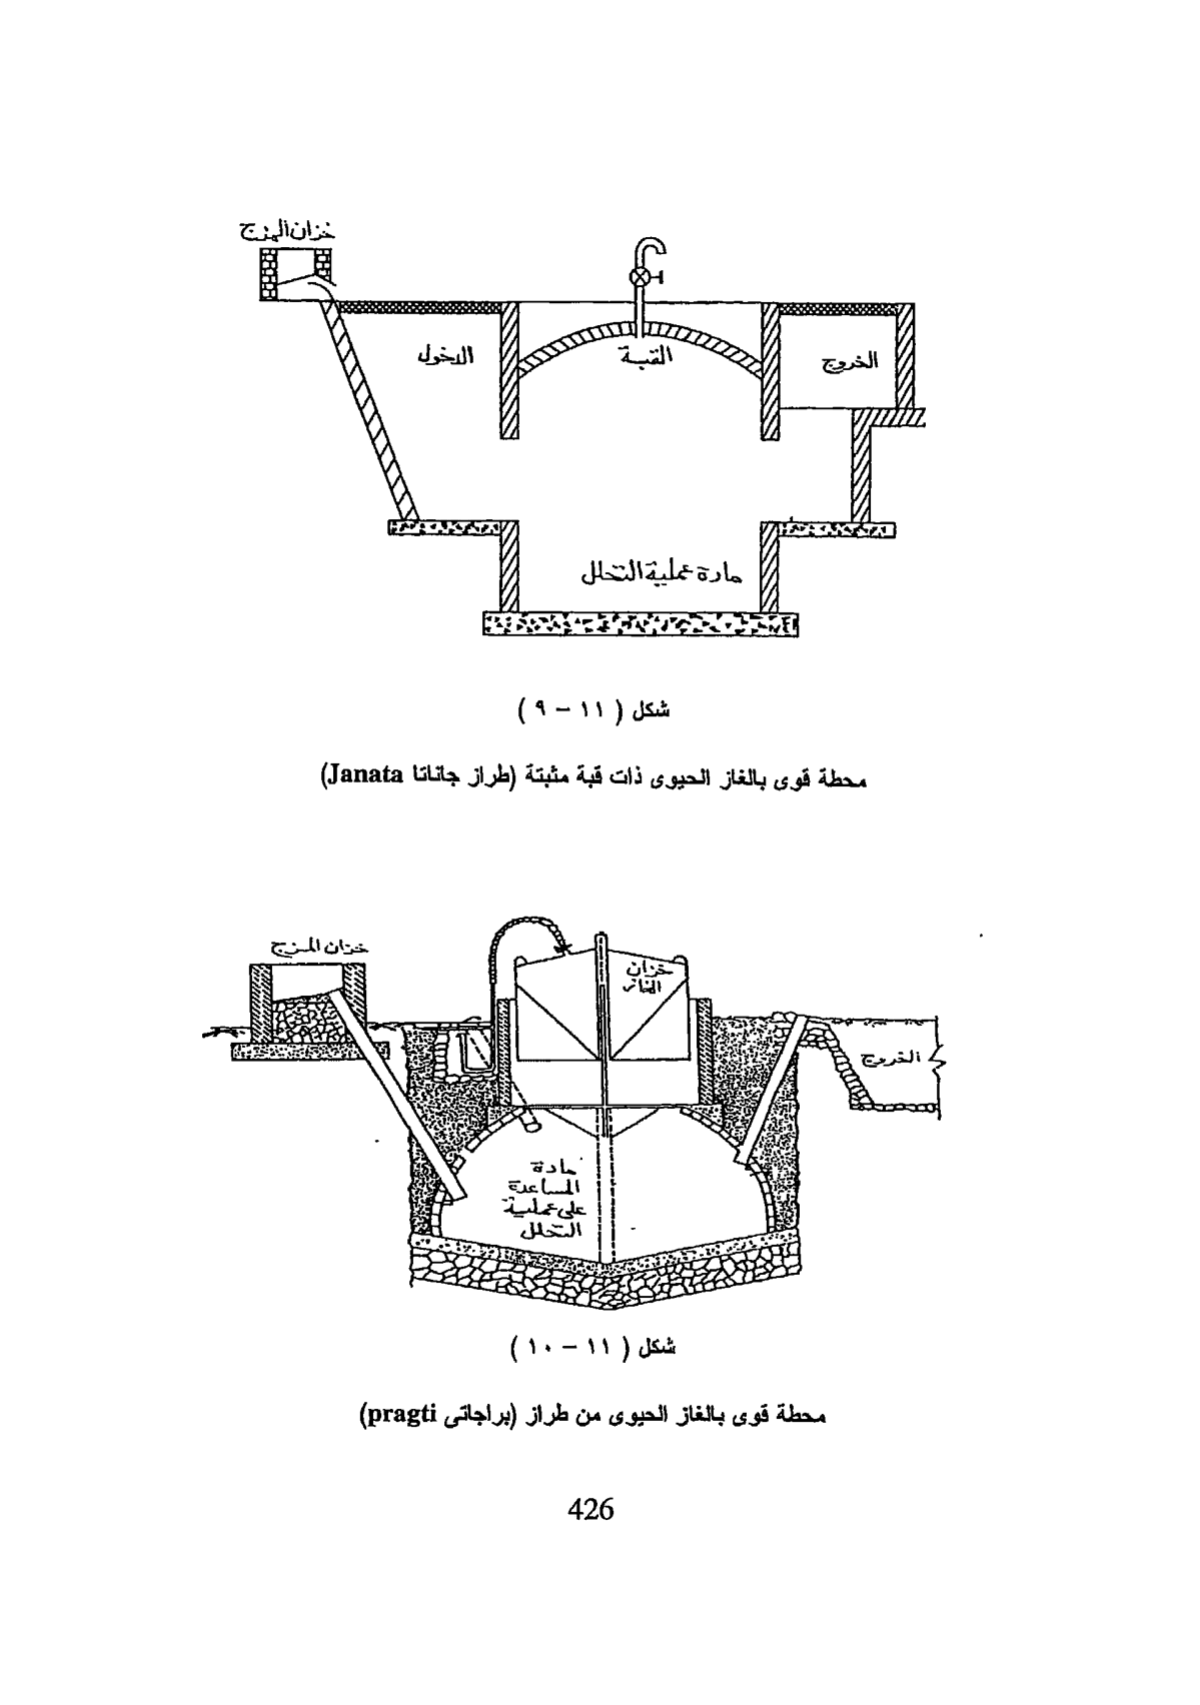 خزان المزج
الدخول
القبة
الخروج
مادة عملية التحلل
شكل ( ١١ – ٩ )
محطة قوى بالغاز الحيوى ذات قبة مثبتة (طراز جاناتا Janata)
خزان المزج
خزان
الغاز
الخروج
مادة
المساعدة
على عملية
التحلل
شكل ( ١١ – ١٠ )
محطة قوى بالغاز الحيوى من طراز (براجاتى pragti)
426